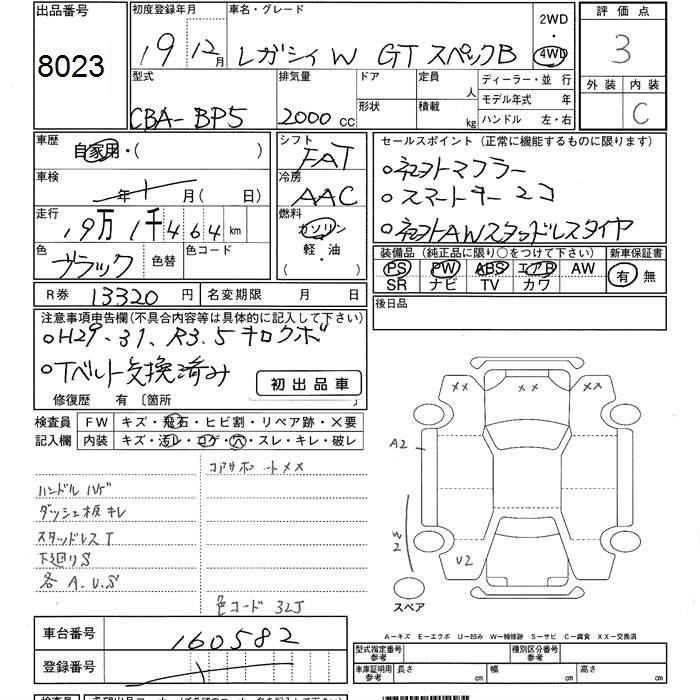 出品番号
8023
初度登録年月
19年12月
車名・グレード
レガシィW GTスペックB
2WD
・
4WD
評価点
3
外装 内装
C
型式
CBA-BP5
排気量
2000 CC
ドア
形状
定員
人
積載
kg
ディーラー・並行
モデル年式 年
ハンドル 左・右
車歴
自家用・( )
シフト
FAT
車検
年 月( 日)
冷房
AAC
走行
19万1千464 km
燃料
ガソリン
軽・油
( )
色
ブラック
色替
色コード
R券 13320 円
名変期限 月 日
セールスポイント(正常に機能するものに限ります)
○ネヨトマフラー
○スマートキー2コ
○ネヨトAWスタッドレスタイヤ
装備品(純正品に限り○をつけて下さい)
PS PW ABS エアB AW
SR ナビ TV カワ
新車保証書
有 無
後日品
注意事項申告欄(不具合内容等は具体的に記入して下さい)
○H29.31、R3.5キロクボ
○Tベルト交換済み
修復歴 有〔箇所
初出品車
検査員
記入欄
FW キズ・飛石・ヒビ割・リペア跡・X要
内装 キズ・汚レ・コゲ・穴・スレ・キレ・破レ
コアサポートXX
ハンドルハゲ
ダッシュ板キレ
スタッドレスT
下廻りS
各A.U.S
色コード 32J
XX
XX
XX
A2
W2
U2
スペア
車台番号
160582
登録番号
A-キズ E-エクボ U-凹み W-補修跡 S-サビ C-腐食 XX-交換済
型式指定番号
参考
種別区分番号
参考
車庫証明用
参考
長さ cm
幅 cm
高さ cm
検査員